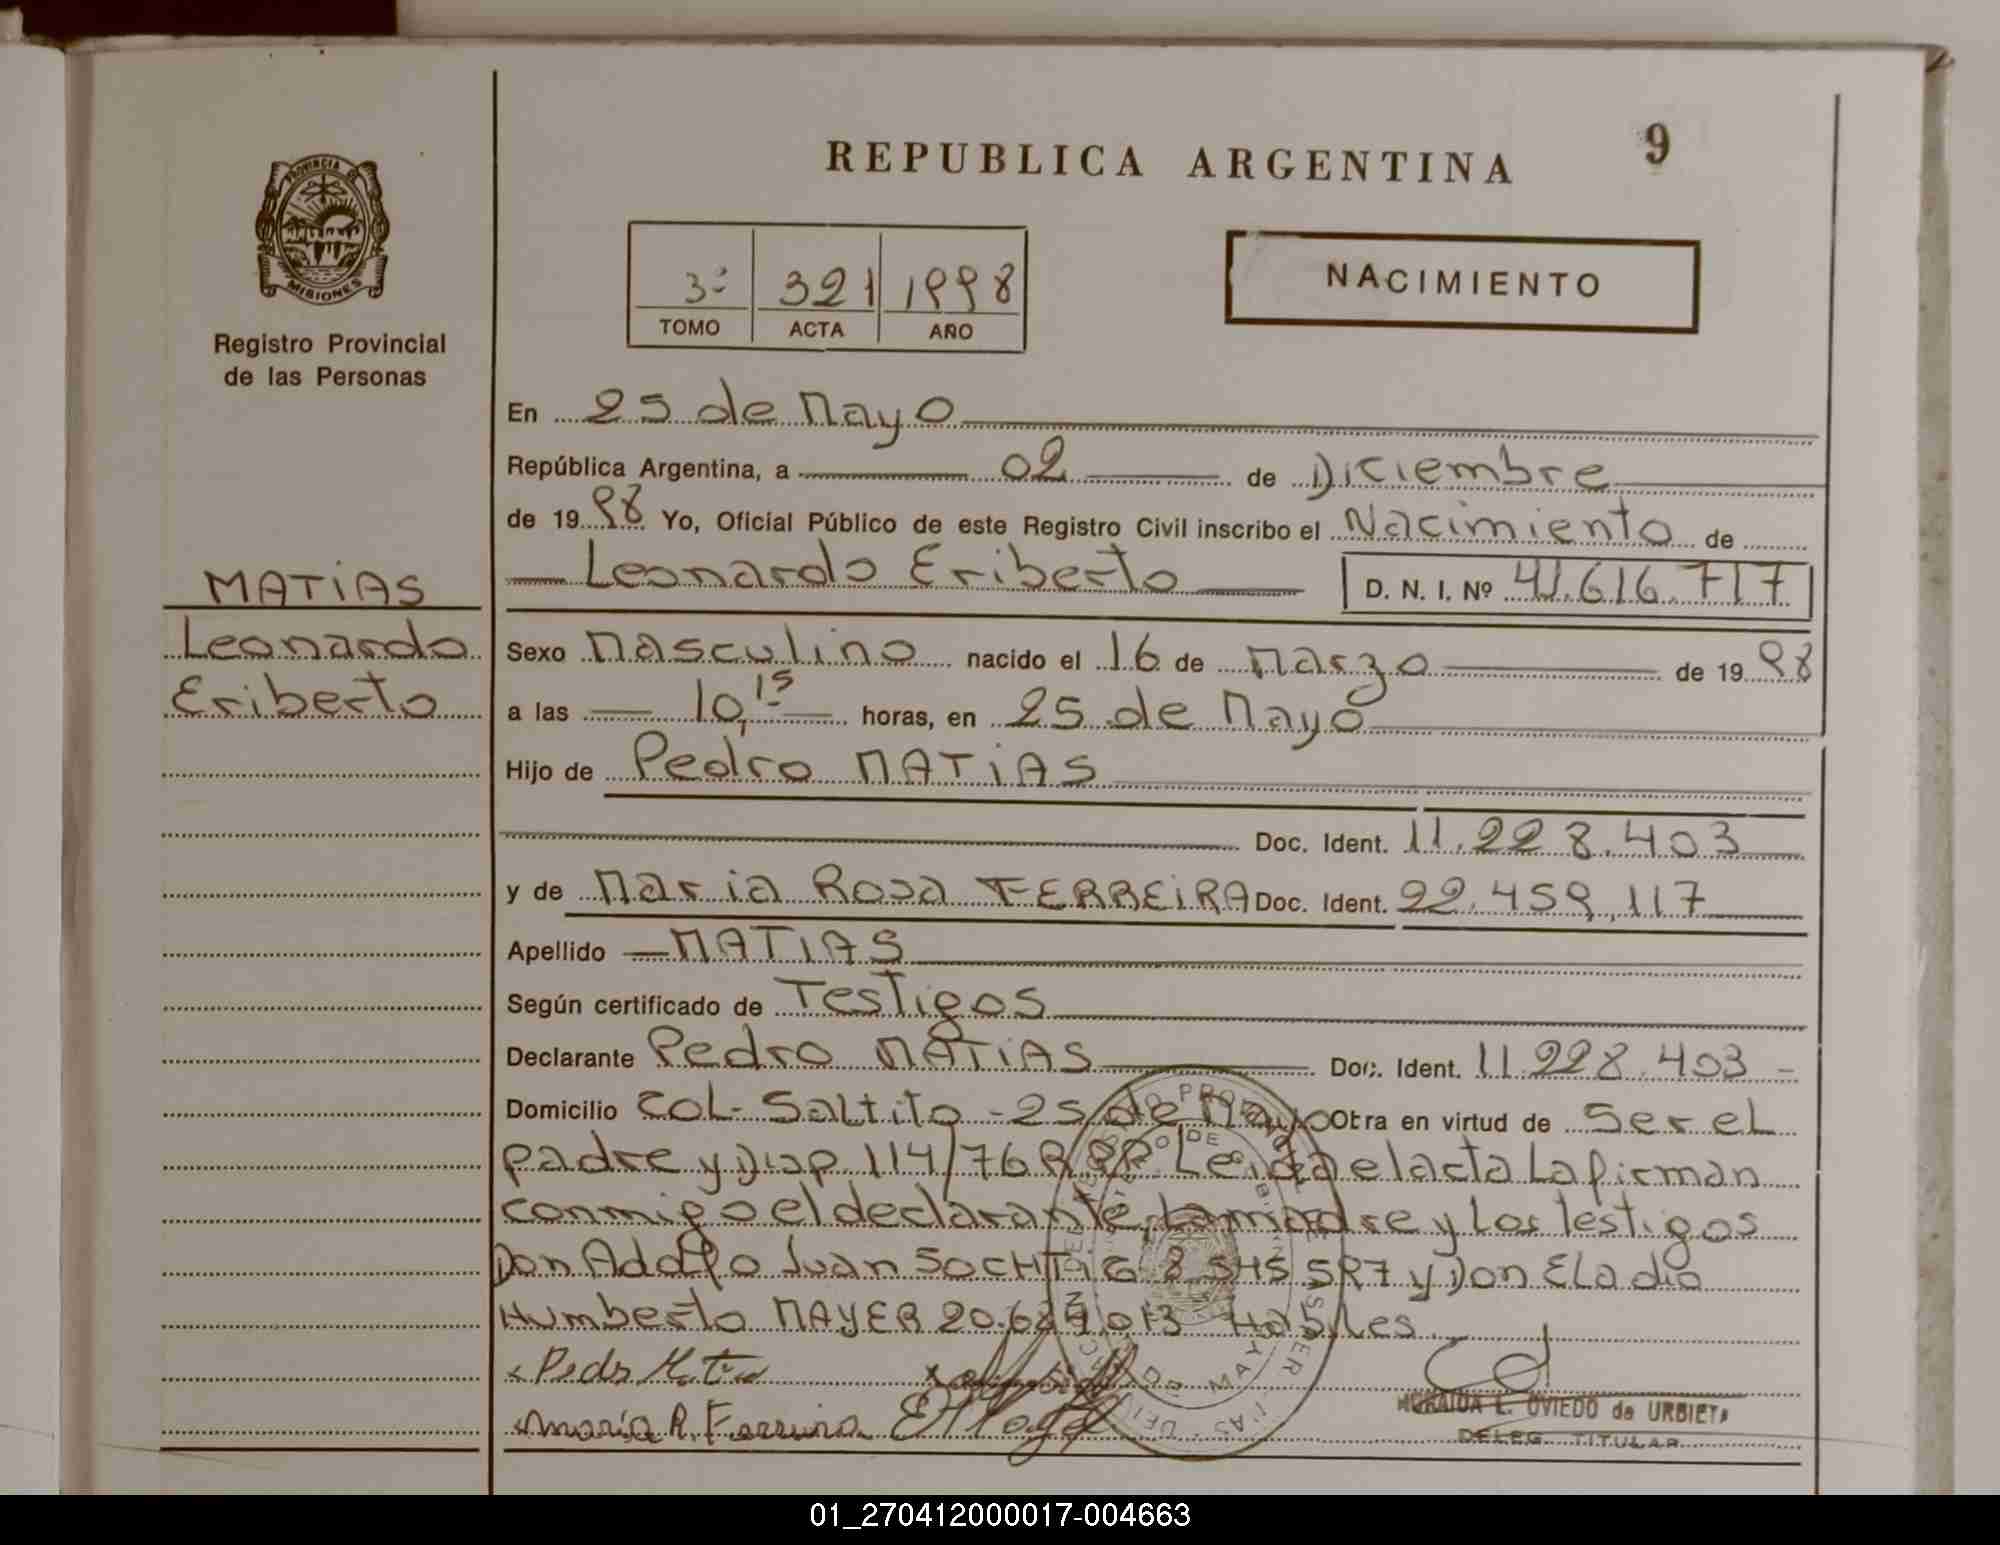 REPUBLICA ARGENTINA
9
PROVINCIA DE
MISIONES
Registro Provincial
de las Personas
3º 321 1998
TOMO ACTA AÑO
NACIMIENTO
MATIAS
Leonardo
Eriberto
En 25 de Mayo
República Argentina, a 02 de Diciembre
de 1998 Yo, Oficial Público de este Registro Civil inscribo el Nacimiento de
Leonardo Eriberto D. N. I. Nº 41.616.717
Sexo Masculino nacido el 16 de Marzo de 1998
a las 10,15 horas, en 25 de Mayo
Hijo de Pedro MATIAS
Doc. Ident. 11.228.403
y de Maria Rosa FERREIRA Doc. Ident. 22.459.117
Apellido MATIAS
Según certificado de Testigos
Declarante Pedro MATIAS Doc. Ident. 11.228.403
Domicilio COL- Saltito - 25 de Mayo Otra en virtud de Ser el
padre y Disp. 114/76 RPP. Leida el acta La firman
conmigo el declarante, La madre y Los Testigos
Don Adolfo Juan SOCHTIG 8.545.597 y Don Eladio
Humberto MAYER 20.689.013 Habiles.
Pedro Matia
Maria R. Ferreira
L. OVIEDO de URBIETA
DELEG. TITULAR
01_270412000017-004663